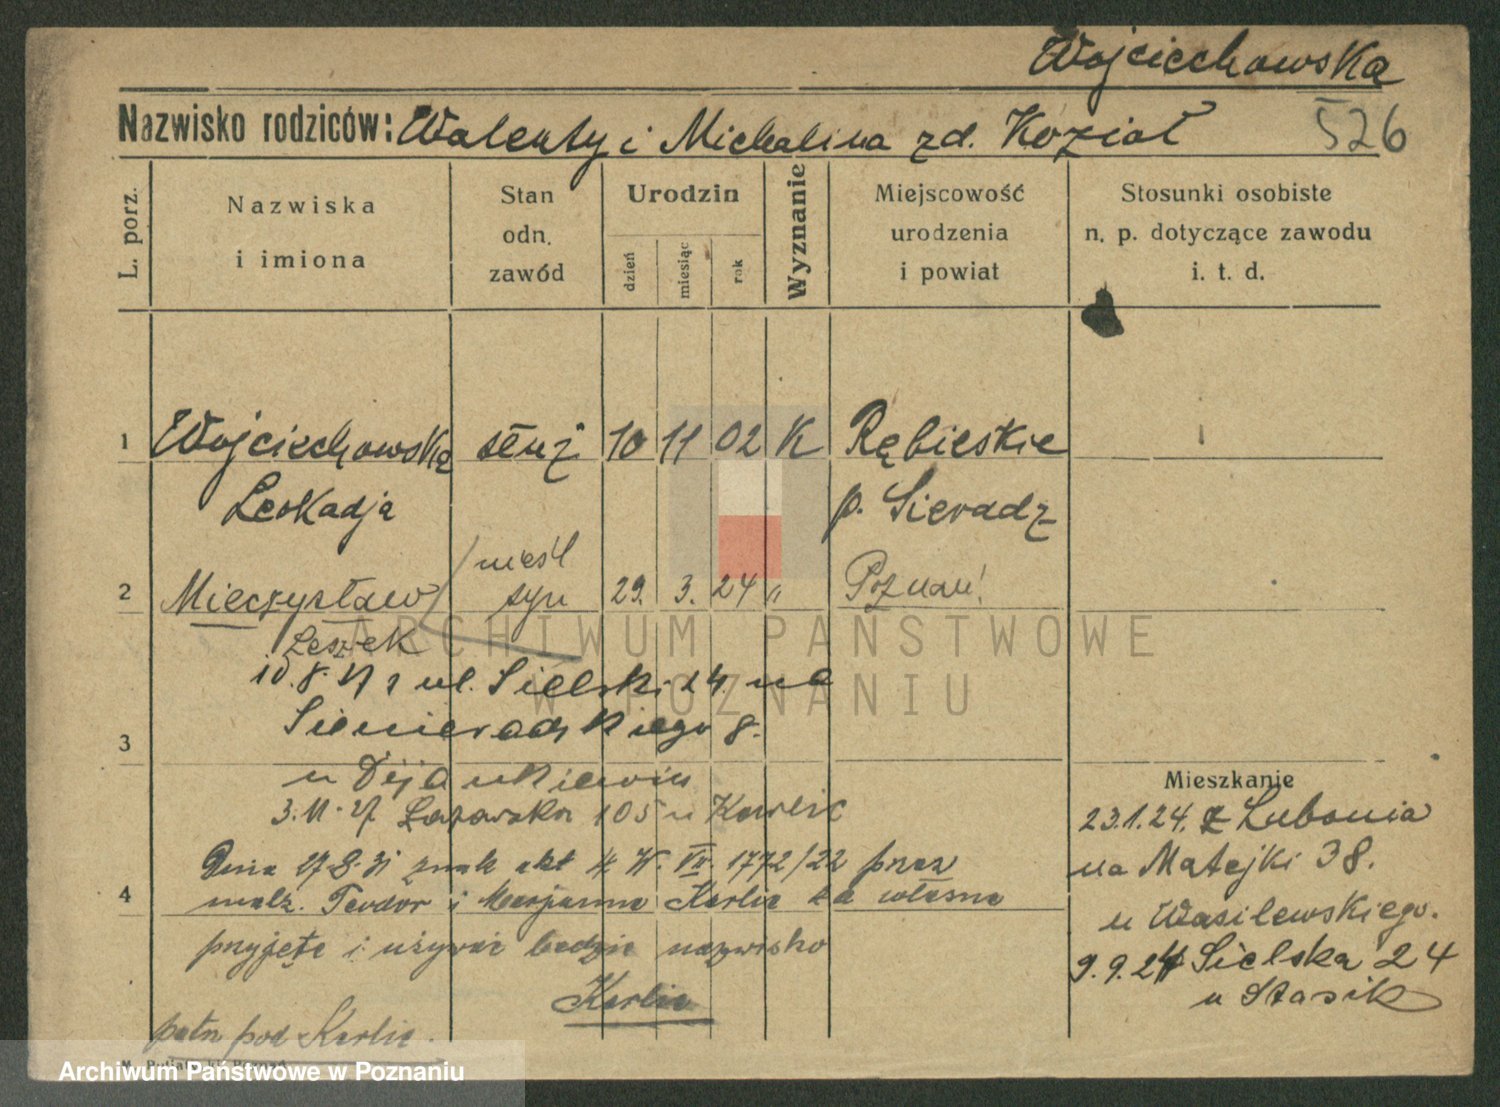 Wojciechowska
Nazwisko rodziców: Walenty i Michalina zd. Kozioł
526
L. porz.
Nazwiska
i imiona
Stan
odn.
zawód
Urodzin
dzień
miesiąc
rok
Wyznanie
Miejscowość
urodzenia
i powiat
Stosunki osobiste
n. p. dotyczące zawodu
i. t. d.
1 Wojciechowska służ 10 11 02 K Rębieskie
Leokadja p. Sieradz
nieśl
2 Mieczysław syn 29. 3. 24 " Poznań!
Leszek
ul. Sielski 24. na
3 Siemieradzkiego 8.
u
105 u Karlic
Mieszkanie
23.1.24. z Lubonia
na Matejki 38.
u Wasilewskiego.
9.9.24 Sielska 24
u Stasik
Dnia 17-8-31 znak akt 4. W. VII. 1772/22 przez
4 małż. Teodor i Marjanna Karlic za własne
przyjęte i używać będzie nazwisko
Karlic
patrz pod Karlic.
ARCHIWUM PAŃSTWOWE
W POZNANIU
Archiwum Państwowe w Poznaniu